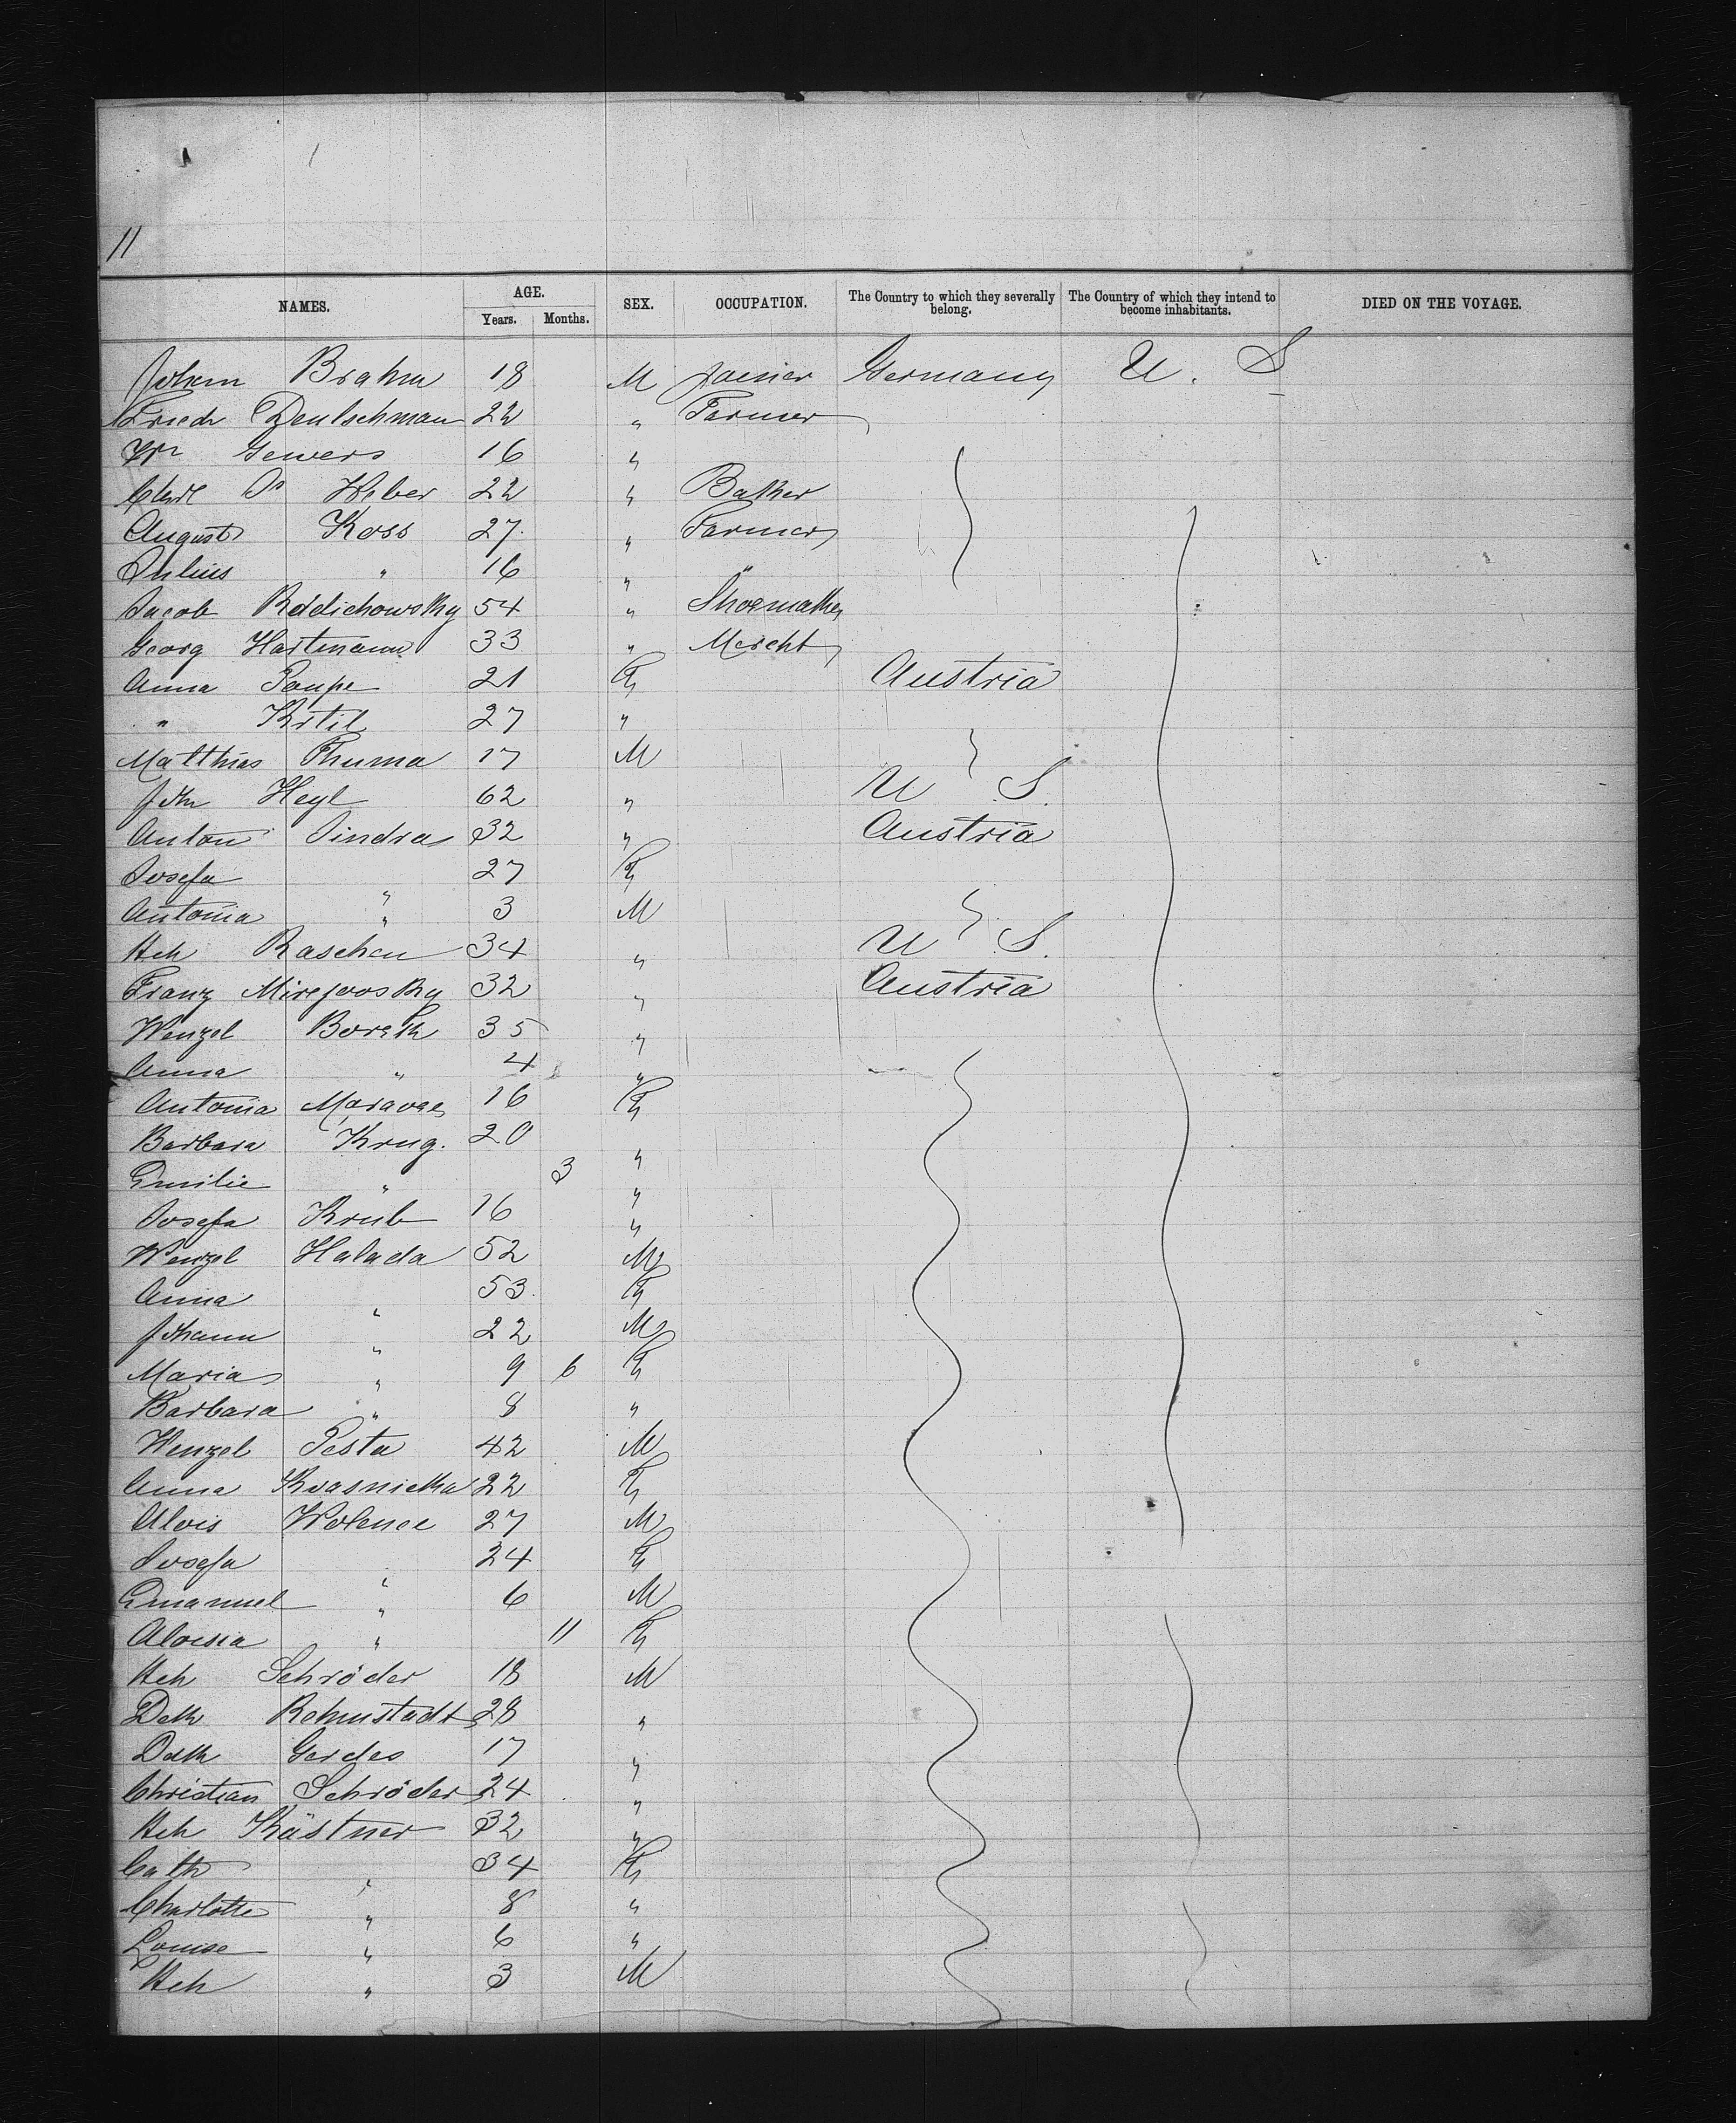 11
NAMES. AGE. Years. Months. SEX. OCCUPATION. The Country to which they severally belong. The Country of which they intend to become inhabitants. DIED ON THE VOYAGE.
Johem Brahm 18 M Joiner Germany U. S
Friedr Deutschman 22 " Farmer
Gewers 16 "
Carl Weber 22 " Baker
August Koss 27 " Farmer
Julius " 16 " "
Jacob 54 " Shoemaker
Georg Hartmann 33 " Mercht
Anna Poupe 21 F Austria
" Krtil 27 "
Matthias Thuma 17 M
John Heyl 62 " U S.
Anton Jindra 32 " Austria
Josefa " 27 F
Antonia " 3 M
Hch Raschen 34 " U S.
Franz 32 " Austria
Wenzel 35 "
Anna " 4 "
Antonia 16 F
Barbara Krug. 20 "
Emilie " 3 "
Josefa Krub 16 "
Wenzel Halada 52 M
Anna " 53 F
Johann " 22 M
Maria " 9 6 F
Barbara " 8 "
Wenzel Pesta 42 M
Anna Krasnicka 22 F
Alois Wolence 27 M
Josefa " 24 F
Emanuel " 6 M
Aloisia " 11 F
Hch Schröder 18 M
Dth Rohmstadt 28 "
Dth Gerdes 17 "
Christian Schröder 24 "
Hch Kästner 32 "
Cath " 34 F
Charlotte " 8 "
Louise " 6 "
Hch " 3 M